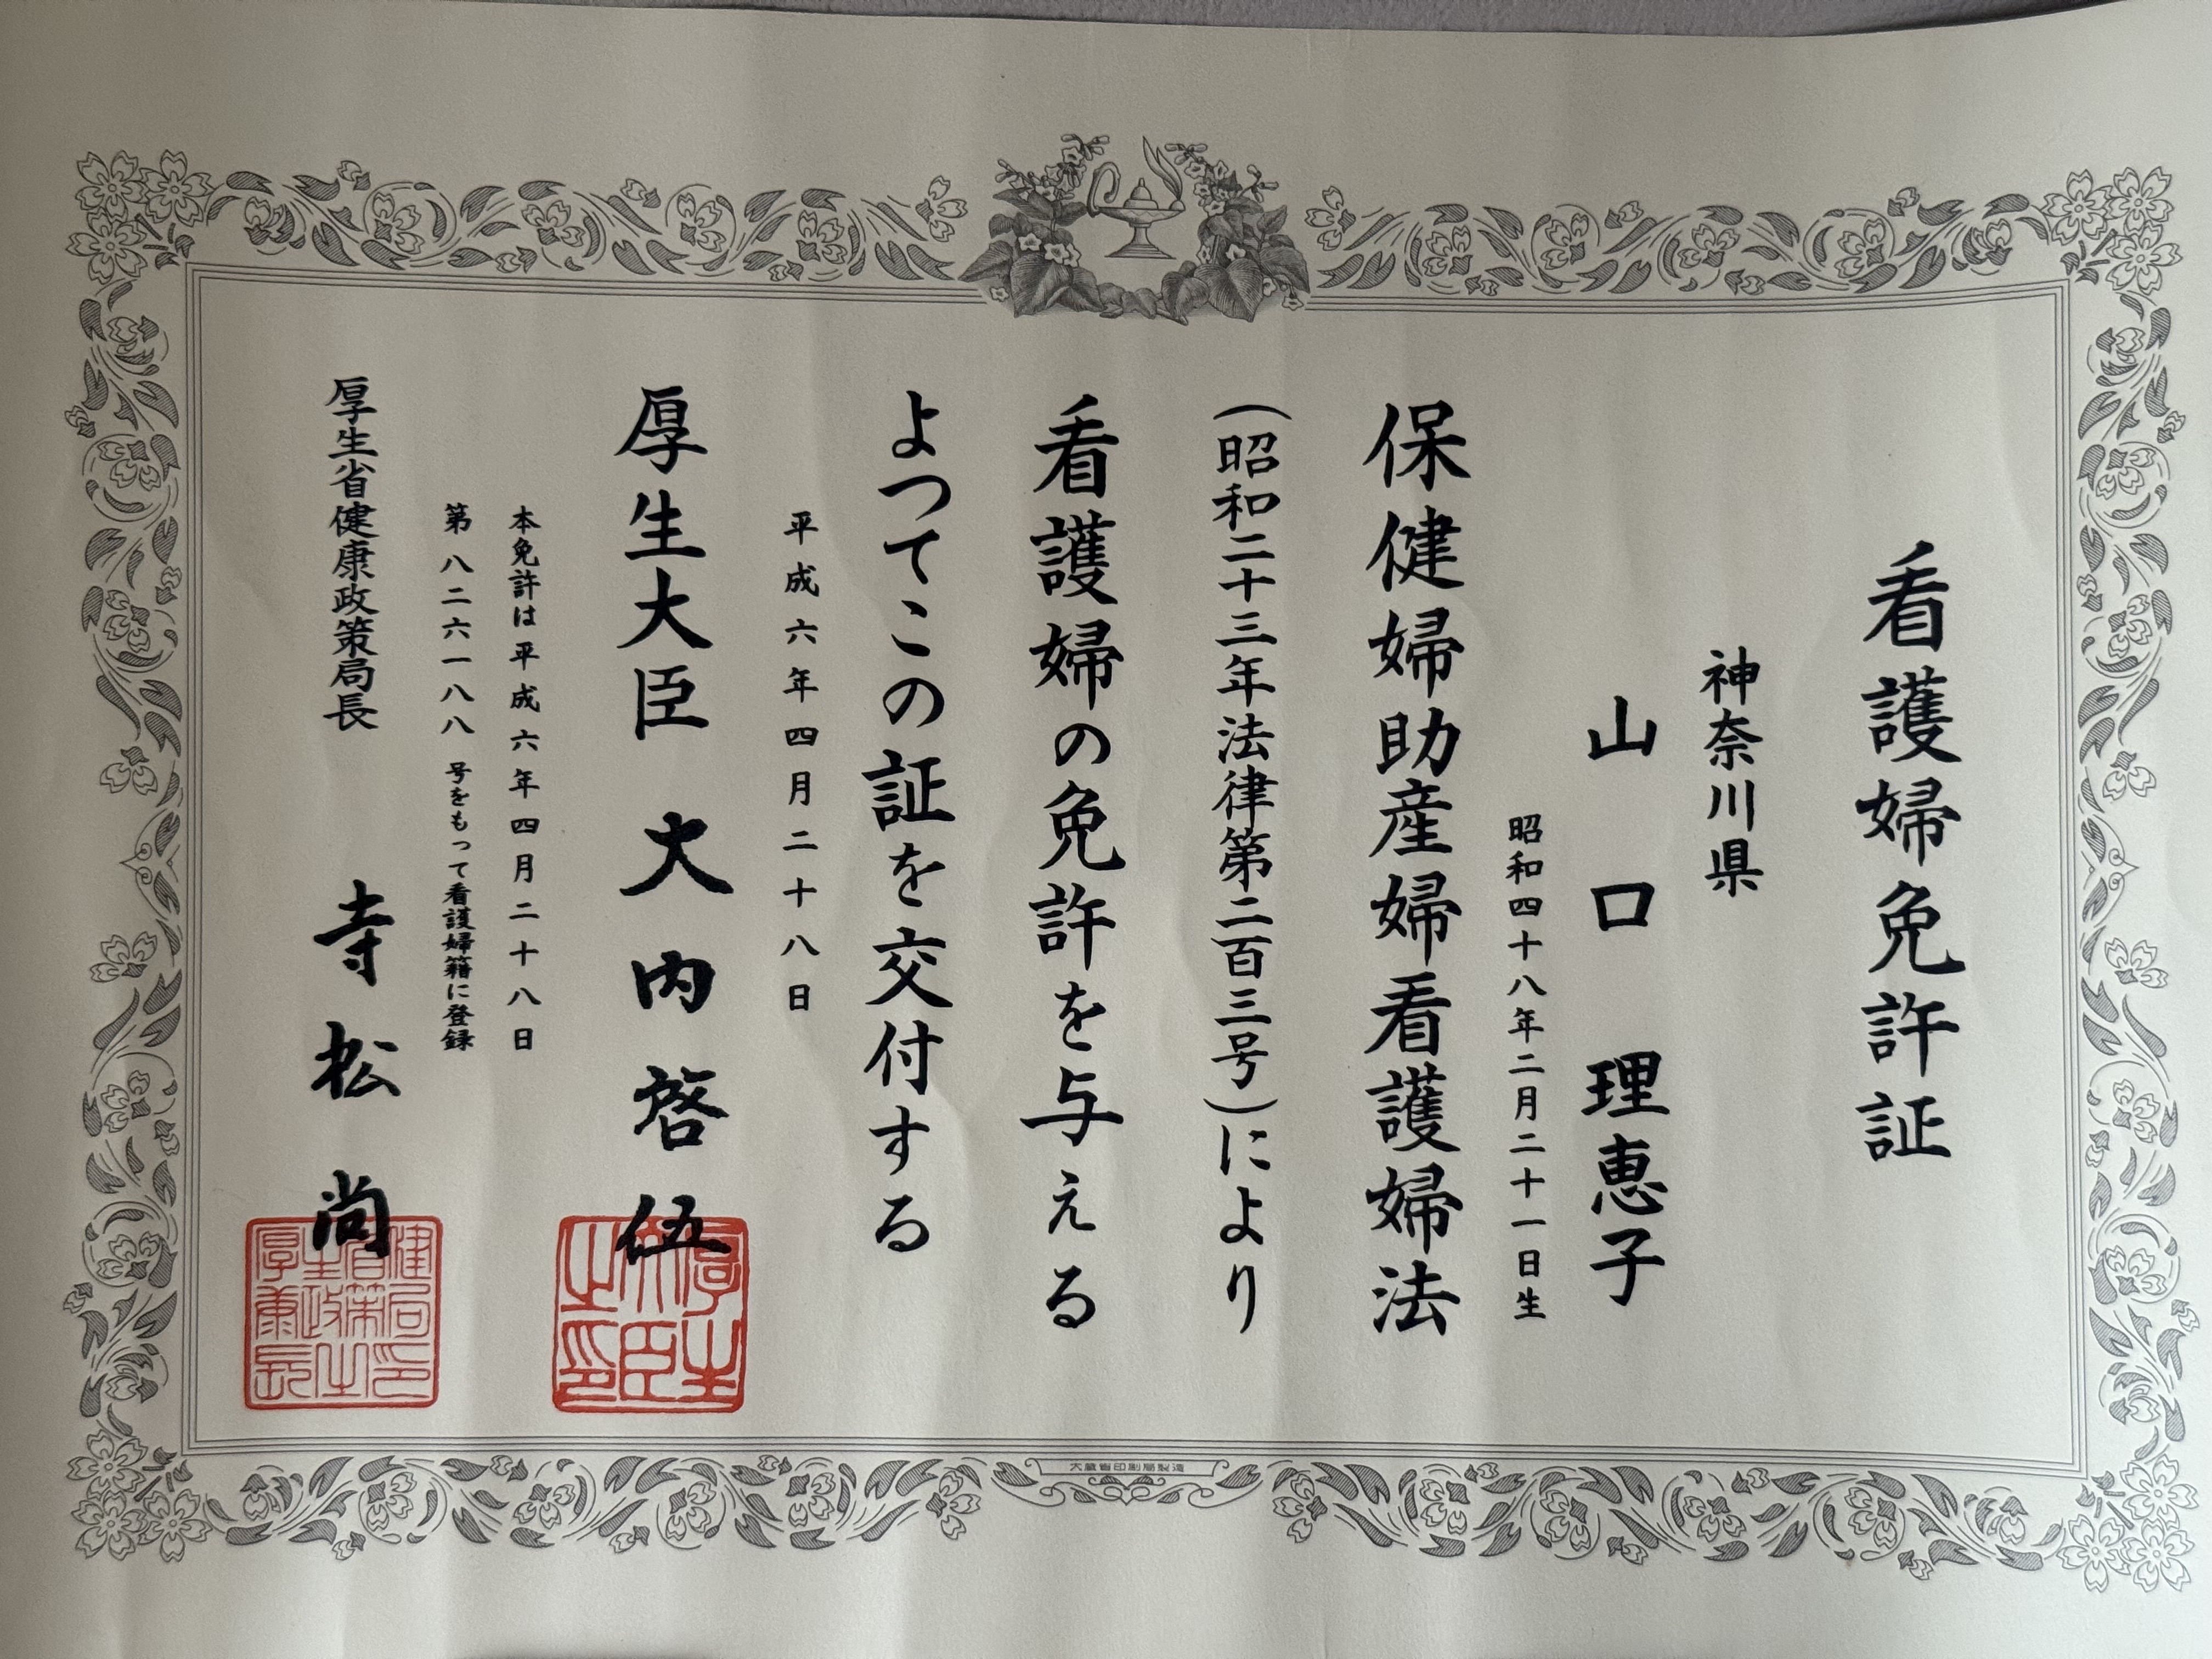 看護婦免許証
神奈川県
山口理恵子
昭和四十八年二月二十一日生
保健婦助産婦看護婦法
(昭和二十三年法律第二百三号)により
看護婦の免許を与える
よつてこの証を交付する
平成六年四月二十八日
厚生大臣 大内啓伍
本免許は平成六年四月二十八日
第八二六一八八号をもって看護婦籍に登録
厚生省健康政策局長 寺松尚
厚生大臣之印
厚生省健康政策局長之印
大蔵省印刷局製造